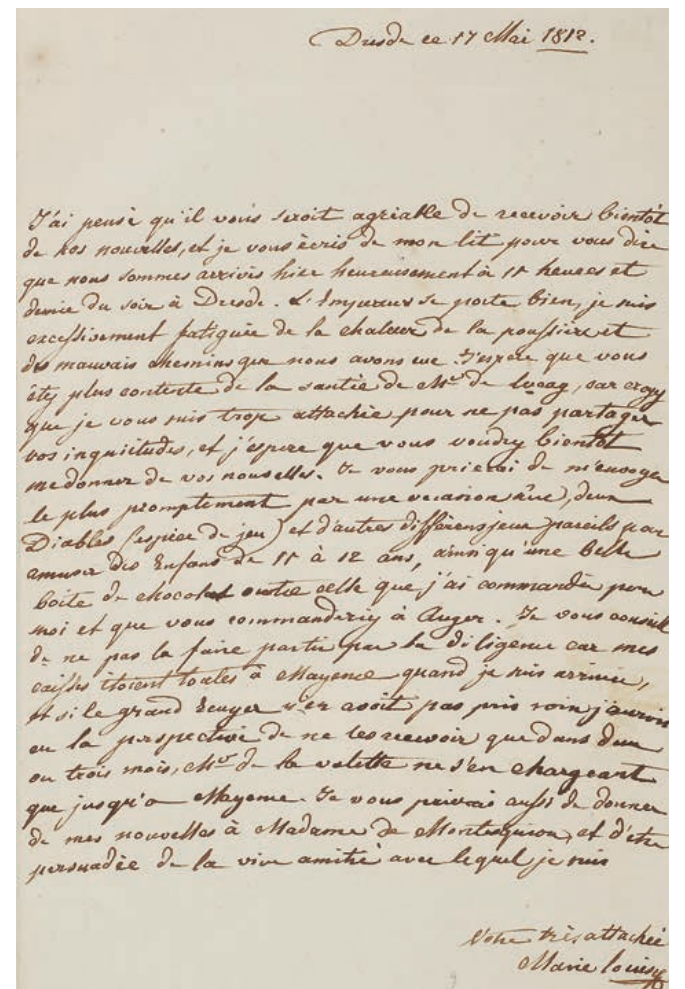 Dresde ce 17 Mai 1812.
J'ai pensé qu'il vous seroit agréable de recevoir bientôt
de nos nouvelles, et je vous écris de mon lit pour vous dire
que nous sommes arrivés hier heureusement à 11 heures et
demie du soir à Dresde. L'Empereur se porte bien, je suis
excessivement fatiguée de la chaleur de la poussière et
des mauvais chemins que nous avons eue. J'espère que vous
étes plus contente de la santée de Mr de Lucay, car croyez
que je vous suis trop attachée pour ne pas partager
vos inquiétudes, et j'espère que vous voudrez bientôt
me donner de vos nouvelles. Je vous prierai de m'envoyer
le plus promptement par une occasion sûre, deux
Diables (espèce de jeu) et d'autres différens jeux pareils pour
amuser des Enfans de 11 à 12 ans, ainsi qu'une belle
boîte de chocolat outre celle que j'ai commandée pour
moi et que vous commanderez à Auger. Je vous conseille
de ne pas la faire partir par la diligence car mes
caisses étoient toutes à Mayence quand je suis arrivée,
et si le grand Ecuyer n'en avoit pas pris soin j'aurois
eu la perspective de ne les recevoir que dans deux
ou trois mois, Mr de la valette ne s'en chargeant
que jusqu'a Mayence. Je vous prierai aussi de donner
de mes nouvelles à Madame de Montesquiou, et d'être
persuadée de la vive amitié avec lequel je suis
Votre très attachée
Marie Louise